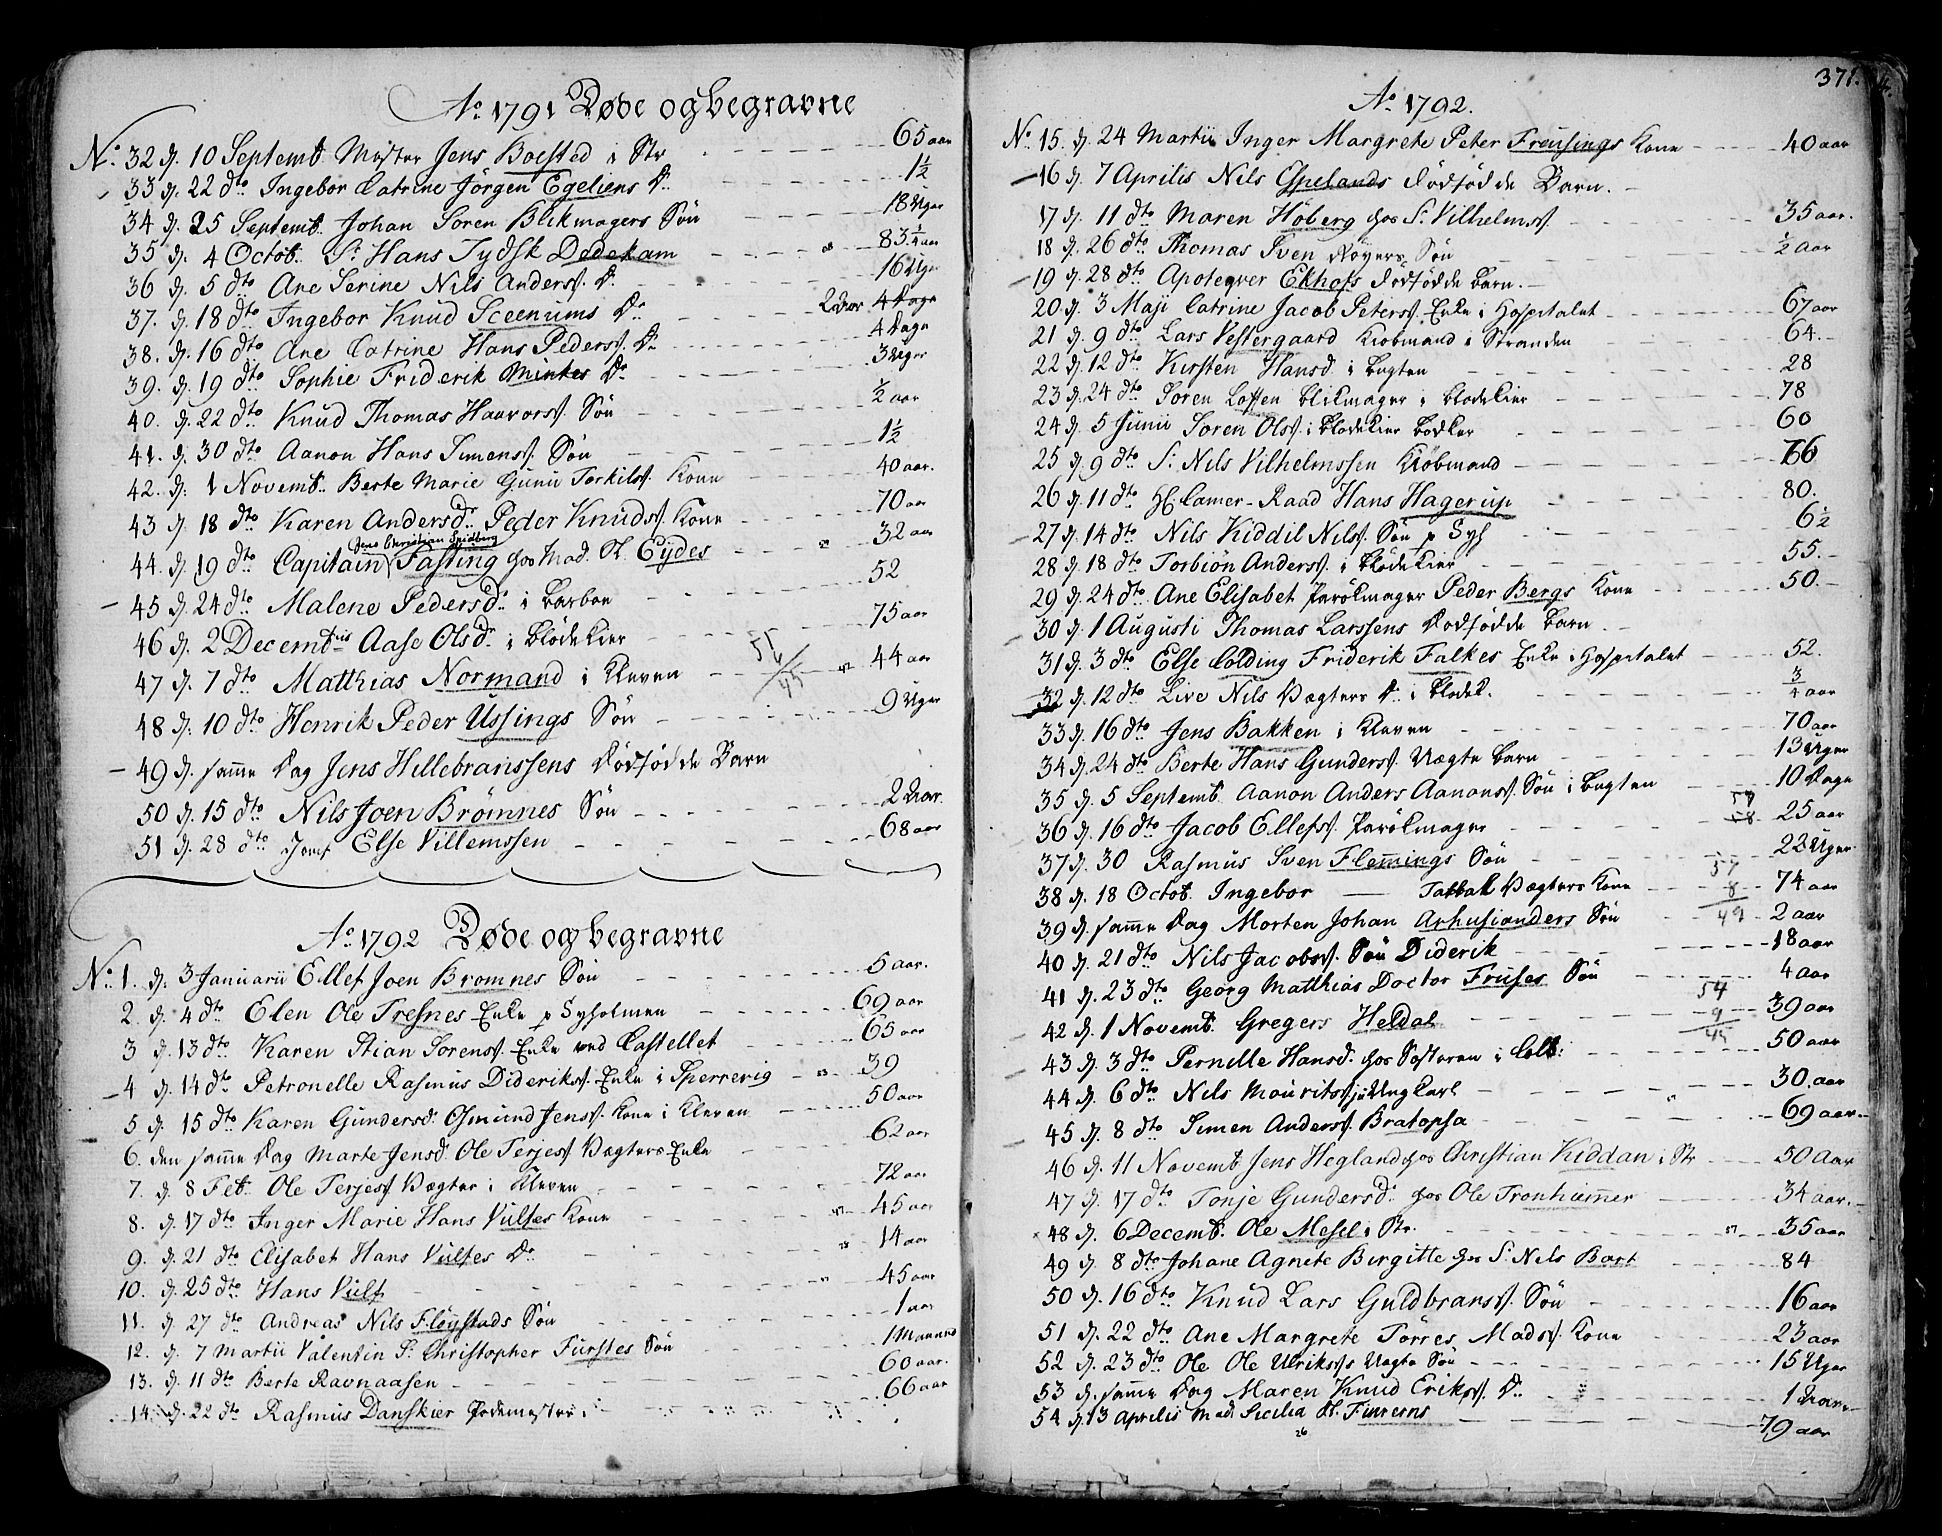 Ao 1791 Døde og begravne
No 32 d. 10 Septemb. Mester Jens Boested i Str 65 aar
33 d. 22 dto Ingebor Catrine Jørgen Egeliens Dr 1½
34 d. 25 Septemb. Johan Soren Blikmagers Søn 18 Uger
35 d. 4 Octob. Sr Hans Tydsk Dedekam 83¼ aar
36 d. 5 dto Ane Serine Nils Anders. Dr 16 Uger
37. d. 18 dto Ingebor Knud Sceenums Dr 2 Aar 4 Dage
38. d. 16 dto Ane Catrine Hans Peders. Dr 4 Dage
39. d. 19 dto Sophie Friderik Mintes Dr 3 Uger
40. d. 22 dto Knud Thomas Haavors. Søn ½ aar
41. d. 30 dto Aanon Hans Simens. Søn 1½
42. d. 1 Novemb. Berte Marie Gunu Torkils. Kone 40 aar.
43 d. 18 dto Karen Andersdr Peder Knuds. Kone 70 aar
Jens Christian Spidberg
44. d. 19 dto Capitain Fasting hos Mad. Sl. Eydes 32 aar
45 d. 24 dto Malene Pedersdr i Barboe 52
46 d. 2 Decembris Aase Olsdr i Blødekier 75 aar
51
6/45
47 d. 7 dto Matthias Normand i Kleven 44 aar
48 d. 10 dto Henrik Peder Ussings Søn 9 Uger
49 d. samme Dag Jens Hillebranssens Dødfødde Barn
50 d. 15 dto Nils Joen Brømnes Søn 2 Aar.
51 d. 28 dto Jomf Else Villemssen 68 aar
Ao 1792 Døde og begravne
No 1. d. 3 Januarii Ellef Joen Bromnes Søn 5 aar.
2. d. 4 dto Elen Ole Tresnes Enke p Hyholmen 69 aar
3 d. 13 dto Karen Stian Sorens. Enke ved Castellet 65 aar
4 d. 14 dto Petronelle Rasmus Dideriks. Enke i Sperrevig 39
5 d. 15 dto Karen Gundersd. Osmund Jens. Kone i Kleven 50 aar
6. den samme Dag Marte Jensd. Ole Terjes. Vægters Enke 62 aar
7. d. 8 Feb. Ole Terjes. Vægter i Kleven 72 aar
8. d. 17 dto Inger Marie Hans Vulfes Kone 45 aar
9. d. 21 dto Elisabet Hans Vulfes Dr 14 aar
10. d. 25 dto Hans Vulf 45 aar
11. d. 27 dto Andreas Nils Fløystads Søn 1 aar
12. d. 7 Martii Valentin Sr Christopher Furstes Søn 1 Maaned
13. d. 11 dto Berte Ravnaasen 60 aar.
14. d. 22 dto Rasmus Danskier Podemester 66 aar
371.
Ao 1792.
No 15. d. 24 Martii Inger Margrete Peter Freusings Kone 40 aar
16 d. 7 Aprilis Nils Espelands Dødfødde Barn.
17 d. 11 dto Maren Höberg hos Sr Vilhelms. 35 aar.
18 d. 26 dto Thomas Sven Röyers Søn ½ aar
19 d. 28 dto Apoteqver Ekhofs Dødfødde Barn.
20 d. 3 Maji Catrine Jacob Peters. Enke i Hospitalet 67 aar
21 d. 9 dto Lars Vestergaard Kiobmand i Stranden 64.
22 d. 12 dto Kirsten Hansd. i Bugten 28
23 d. 24 dto Soren Loften Blikmager i Blodekier 78
24 d. 5 Junii Soren Ols. i Blodekier Bodker 60
25 d. 9 dto Sr Nils Vilhelmssen Kiöbmand 66
26 d. 11 dto Hr Camer-Raad Hans Hagerup 80.
27 d. 14 dto Nils Kiddil Nils. Søn p Hyh 6½
28 d. 18 dto Torbiön Anders. i Blödekier 55.
29 d. 24 dto Ane Elisabet Parökmager Peder Bergs Kone 50.
30 d. 1 Augusti Thomas Larssens Dødfødde Barn.
31 d. 3 dto Else Colding Friderik Falkes Enke i Hospitalet 52.
32 d. 12 dto Live Nils Vægters Dr i Blodek. ¾ aar
33 d. 16 dto Jens Bakken i Kleven 70 aar
34 d. 24 dto Berte Hans Gunders. Uægte Barn 13 Uger
35 d. 5 Septemb. Aanon Anders Aanons. Søn i Bugten 10 Dage
36 d. 16 dto Jacob Ellefs. Parökmager 25 aar
37 d. 30 Rasmus Sven Flemmings Søn 22 Uger
57
8
49
38 d. 18 Octob. Ingebor — Vægters Kone 74 aar
39 d. samme Dag Morten Johan Arhusianders Søn 2 aar
40 d. 21 dto Nils Jacobs. Søn Diderik 18 aar
41 d. 23 dto Georg Matthias Doctor Fruses Søn 4 aar
54
9
45
42 d. 1 Novemb. Gregers Heldal 39 aar
43 d. 3 dto Pernille Hansd. hos Søsteren i Colb: 50 aar
44 d. 6 dto Nils Maurits. Ung Karl 30. aar
45 d. 8 dto Simen Anders. Bratopsa 69 aar.
46 d. 11 Novemb. Jens Hegland hos Christian Kiddan i Str 50 Aar
47 d. 17 dto Tonje Gundersd. hos Ole Tronhiemmer 34 aar.
48 d. 6 Decemb. Ole Mesel i Str. 35 aar
49 d. 8 dto Johane Agnete Birgitte hos Sr Nils Bort 84
50 d. 16 dto Knud Lars Guldbrans. Søn 16 aar
51 d. 22 dto Ane Margrete Törres Mads. Kone 23 aar
52 d. 23 dto Ole Ole Ulriks. Uægte Søn 15 Uger
53 d. samme Dag Maren Knud Eriks. Dr 1 Aar
54 d. 13 Aprilii Mad. Sicilia Sl. Finrerns 79 aar
26